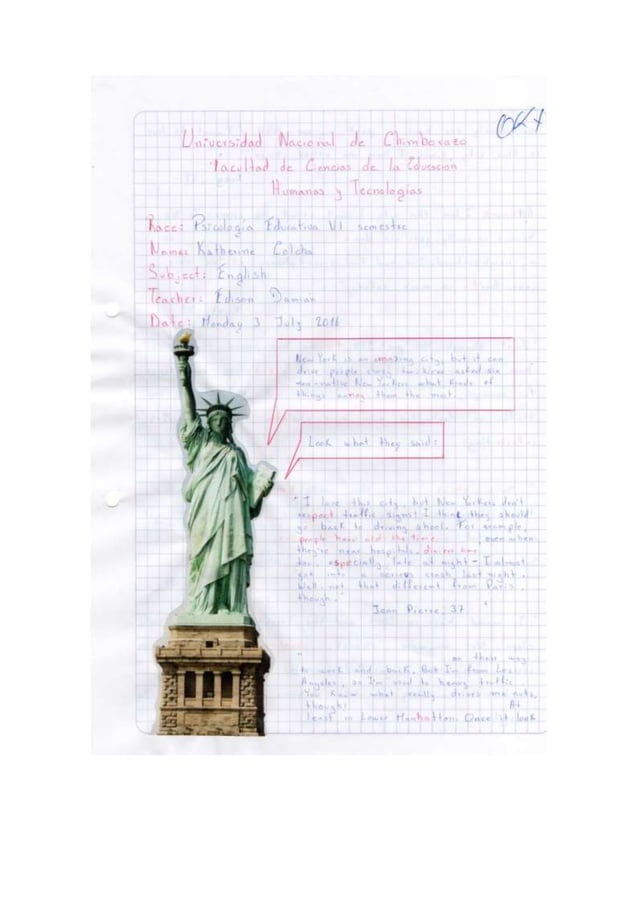 OK
Universidad Nacional de Chimborazo
Facultad de Ciencias de la Educación
Humanas y Tecnologías
Race: Psicología Educativa VI semestre
Name: Katherine Colcha
Subject: English
Teacher: Edison Damian
Date: Monday 3 July 2016
New York is an amazing city, but it can
drive people crazy too. We've asked six
non-native New Yorkers what kinds of
things annoy them the most.
Look what they said:
"I love this city, but New Yorkers don't
respect traffic signs! I think they should
go back to driving shool. For example,
people honk all the time, even when
they're near hospitals.
too, especially late at night - I almost
got into a serious crash last night.
Well, not that different from Paris,
though."
Jean Pierre, 37
"
on their way
to work and back. But I'm from Los
Angeles, so I'm used to heavy traffic.
You know what really drives me nuts,
though? At
least in Lower Manhattan. Once it took